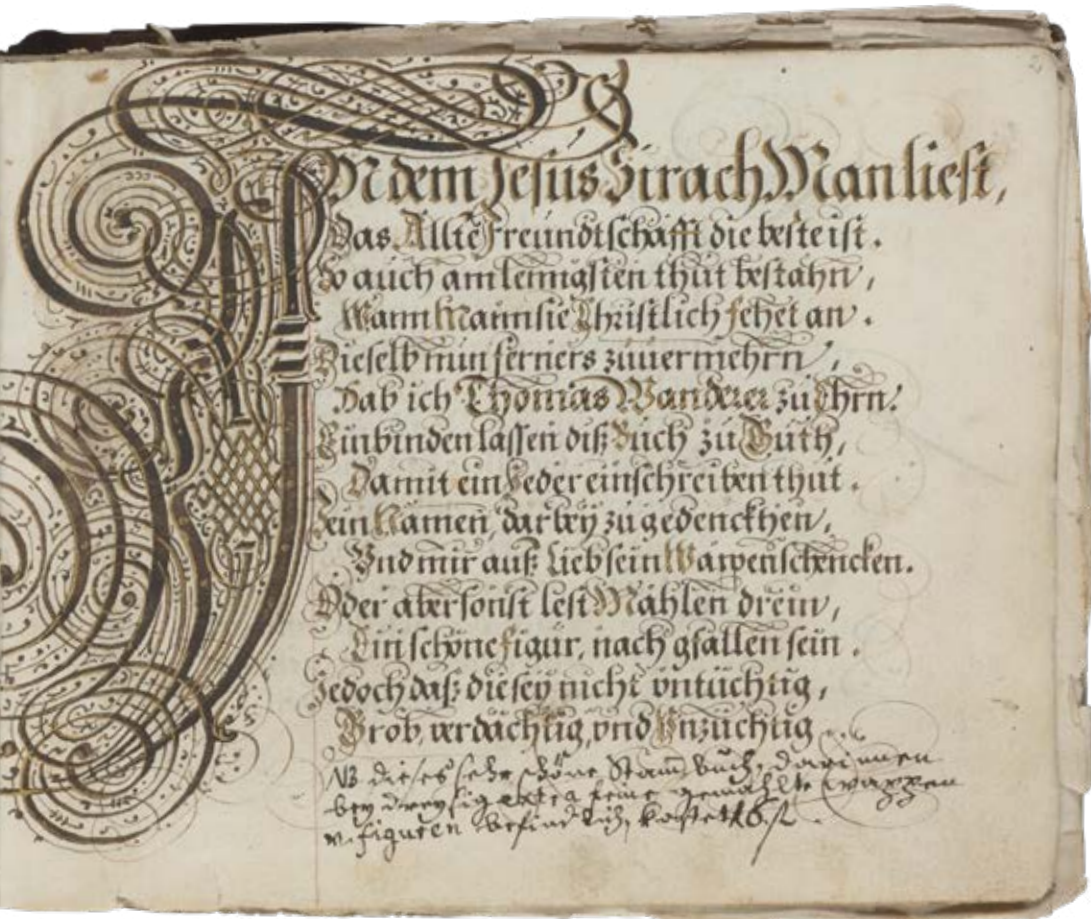 IN dem Jesus Sirach Man liest,
Das Allte Freündtschafft die beste ist.
So auch am lenngsten thut bestahn,
Wann Mann sie Christlich fehet an.
Dieselb nun ferners zuuermehrn,
Hab ich Thomas Wanderer zu Ehrn.
Einbinden lassen diß Buch zu Guth,
Damit ein Jeder einschreiben thut.
Sein Namen, darbey zu gedenckhen,
Vnd mir auß Lieb sein Wapen schencken.
Oder aber sonst lest Mahlen drein,
Ein schöne figur, nach gfallen sein.
Jedoch daß die sey nicht vntüchtig,
Grob, verdächtig, vnd Vnzüchtig
NB dieses sehr schöne Stam̄buch, darinnen
bey dreysig extra feine gemahlte Wappen
v. figuren befindlich, kostet